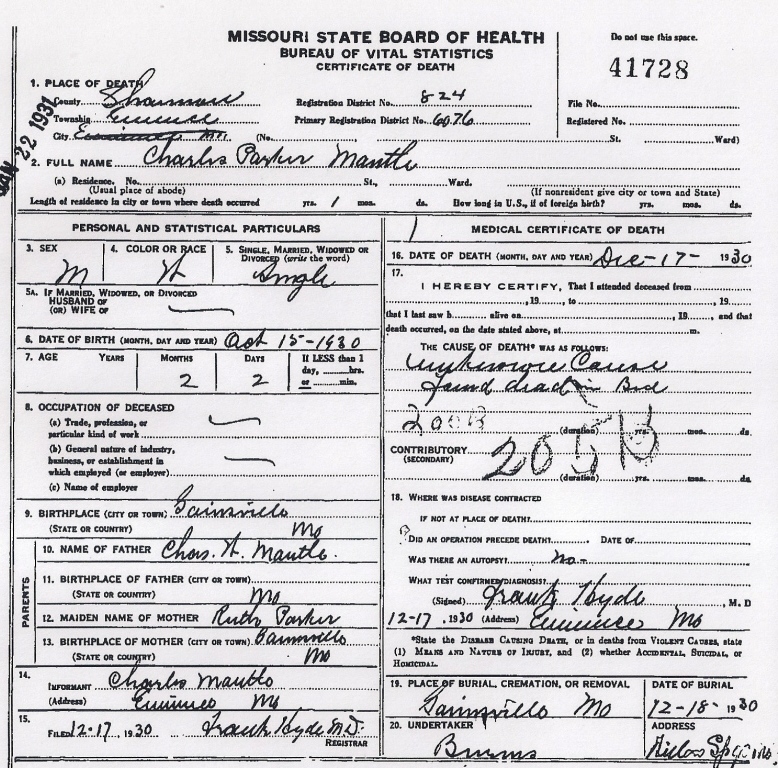 MISSOURI STATE BOARD OF HEALTH
BUREAU OF VITAL STATISTICS
CERTIFICATE OF DEATH
Do not use this space.
41728
JAN 22 1931
1. PLACE OF DEATH
County Shannon Registration District No. 824 File No.
Township Eminence Primary Registration District No. 6076 Registered No.
City Eminence Mo. (No. St. Ward)
2. FULL NAME Charles Parker Mantle
(a) Residence. No. St., Ward.
(Usual place of abode) (If nonresident give city or town and State)
Length of residence in city or town where death occurred yrs. 1 mos. ds. How long in U.S., if of foreign birth? yrs. mos. ds.
PERSONAL AND STATISTICAL PARTICULARS
3. SEX M
4. COLOR OR RACE W
5. SINGLE, MARRIED, WIDOWED OR DIVORCED (write the word) Single
5A. IF MARRIED, WIDOWED, OR DIVORCED
HUSBAND OF
(OR) WIFE OF
6. DATE OF BIRTH (MONTH, DAY AND YEAR) Oct 15-1930
7. AGE YEARS MONTHS DAYS If LESS than 1
day, hrs.
or min.
2 2
8. OCCUPATION OF DECEASED
(a) Trade, profession, or
particular kind of work
(b) General nature of industry,
business, or establishment in
which employed (or employer)
(c) Name of employer
9. BIRTHPLACE (CITY OR TOWN) Gainsville
(STATE OR COUNTRY) Mo
PARENTS
10. NAME OF FATHER Chas. W. Mantle.
11. BIRTHPLACE OF FATHER (CITY OR TOWN)
(STATE OR COUNTRY) Mo
12. MAIDEN NAME OF MOTHER Ruth Parker
13. BIRTHPLACE OF MOTHER (CITY OR TOWN) Gainsville
(STATE OR COUNTRY) Mo
14.
INFORMANT Charles Mantle
(Address) Eminence Mo
15.
FILED 12-17, 1930 Frank Hyde M.D.
REGISTRAR
1
MEDICAL CERTIFICATE OF DEATH
16. DATE OF DEATH (MONTH, DAY AND YEAR) Dec-17- 1930
17.
I HEREBY CERTIFY, That I attended deceased from
, 19 , to , 19
that I last saw h alive on , 19 , and that
death occurred, on the date stated above, at m.
THE CAUSE OF DEATH* WAS AS FOLLOWS:
unknown Cause
found dead in Bed
200B
(duration) yrs. mos. ds.
CONTRIBUTORY
(SECONDARY)
205B
(duration) yrs. mos. ds.
18. WHERE WAS DISEASE CONTRACTED
IF NOT AT PLACE OF DEATH?
DID AN OPERATION PRECEDE DEATH? DATE OF
WAS THERE AN AUTOPSY? no-
WHAT TEST CONFIRMED DIAGNOSIS?
(Signed) Frank Hyde, M. D
12-17, 1930 (Address) Eminence Mo
*State the DISEASE CAUSING DEATH, or in deaths from VIOLENT CAUSES, state
(1) MEANS AND NATURE OF INJURY, and (2) whether ACCIDENTAL, SUICIDAL, or
HOMICIDAL.
19. PLACE OF BURIAL, CREMATION, OR REMOVAL DATE OF BURIAL
Gainsville Mo 12-18-1930
20. UNDERTAKER ADDRESS